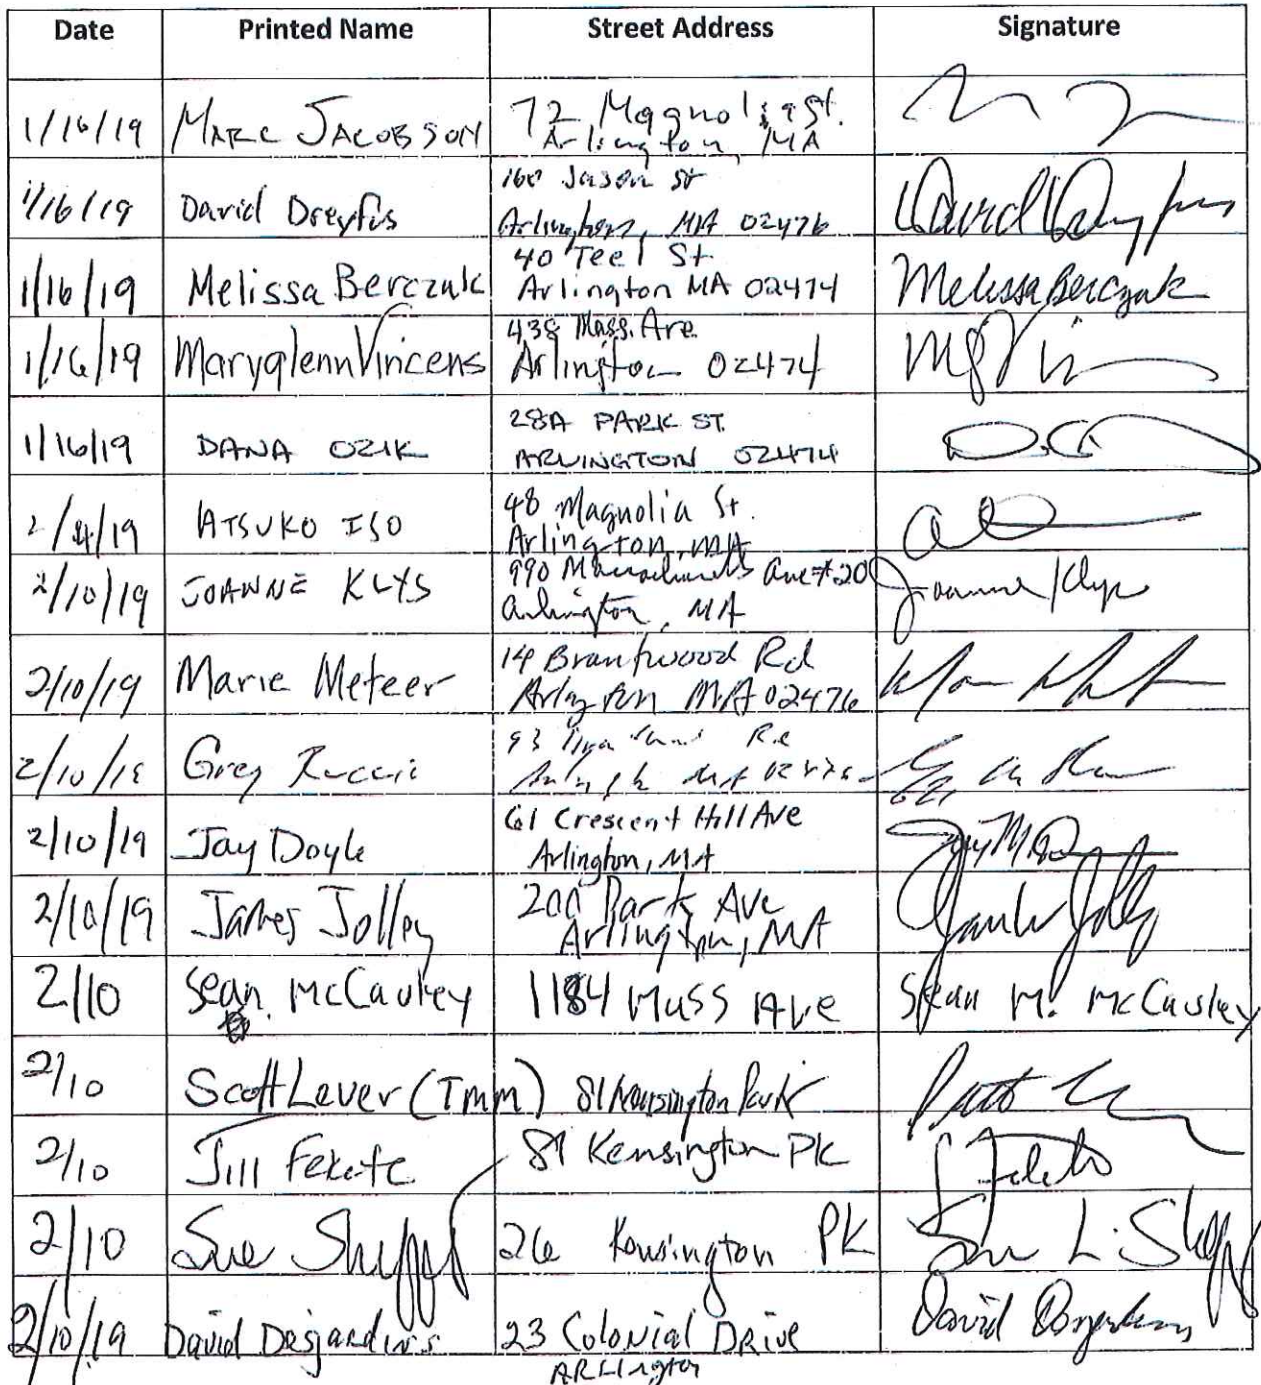 Date Printed Name Street Address Signature
1/16/19 MARC JACOBSON 72 Magnolia St.
Arlington, MA
1/16/19 David Dreyfus 160 Jason St David Dreyfus
Arlington, MA 02476
1/16/19 Melissa Berczuk 40 Teel St. Melissa Berczuk
Arlington MA 02474
1/16/19 Maryglenn Vincens 438 Mass. Ave
Arlington 02474
1/16/19 DANA OZIK 28A PARK ST
ARLINGTON 02474
2/4/19 ATSUKO ISO 48 Magnolia St.
Arlington, MA
2/10/19 JOANNE KLYS 990 Massachusetts Ave #20 Joanne Klys
Arlington, MA
2/10/19 Marie Meteer 14 Brantwood Rd
Arlington MA 02476
Greg 93 Rd
2/10/19 Jay Doyle 61 Crescent Hill Ave
Arlington, MA
2/10/19 James Jolley 200 Park Ave
Arlington, MA
2/10 Sean McCauley 1184 Mass Ave Sean M. McCauley
2/10 Scott Lever (TMM) 81 Kensington Park
2/10 Jill Fekete 81 Kensington PK J Fekete
2/10 Sue 26 Kensington PK Sue L.
2/10/19 David Desjardins 23 Colonial Drive David Desjardins
ARLington